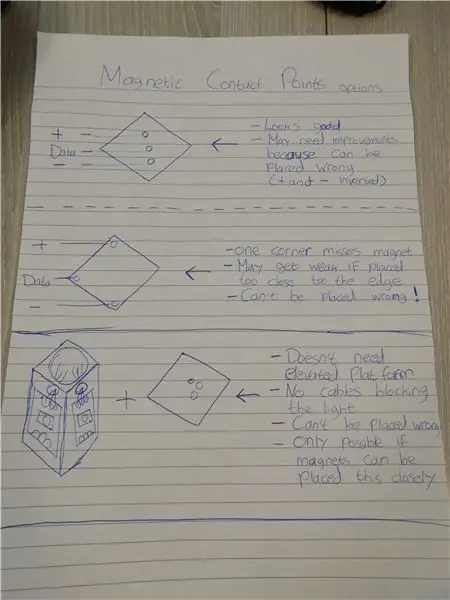 Magnetic Contact Points options
+ -
Data -
- -
- Looks good
- May need improvements
because can be
placed wrong
(+ and - inverted)
+
Data
-
- one corner misses magnet
- May get weak if placed
too close too the edge
- Can't be placed wrong!
+
- Doesn't need
elevated platform
- No cables blocking
the light
- Can't be placed wrong
- only possible if
magnets can be
placed this closely